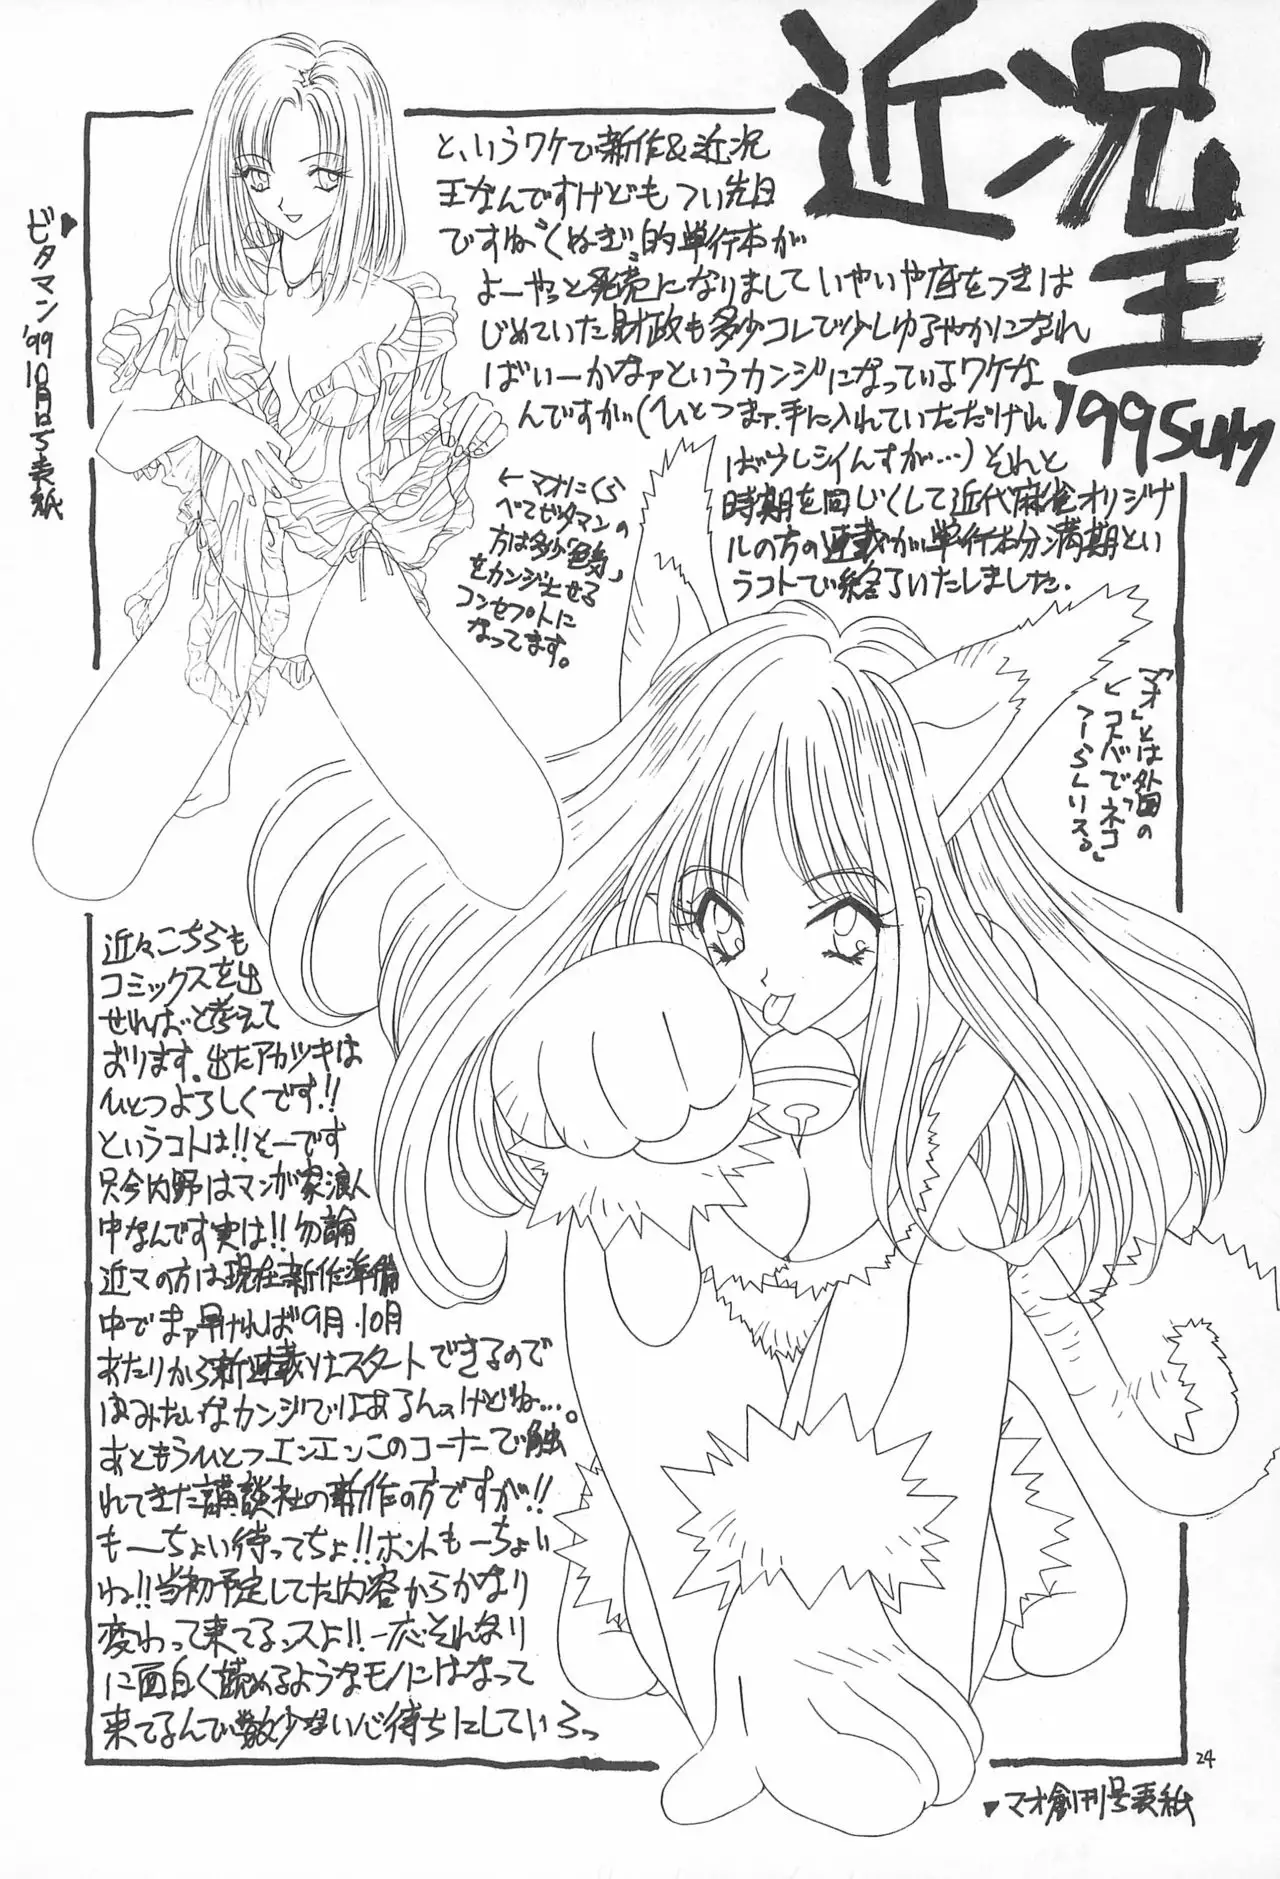 近況王
'99 SUM
と、いうワケで新作&近況
王なんですけどもつい先日
ですね「くぬぎ」的単行本が
よーやっと発売になりましていやいや底をつきは
じめていた財政も多少コレで少しゆるやかになれ
ばいーかなァというカンジになっているワケな
んですが(ひとつまァ手に入れていただけれ
ばウレシイんすが…)それと
時期を同じくして近代麻雀オリジナ
ルの方の連載が単行本分満期とい
うコトで終了いたしました.
ビタマン'99 10月号表紙
←マオにくら
べてビタマンの
方は多少「色気」
をカンジさせる
コンセプトに
なってます。
「マオ」とは外国の
←コトバで「ネコ」
つーらしいスる
近々こちらも
コミックスを出
せればと考えて
おります.出たアカツキは
ひとつよろしくです!!
というコトは!!そーです
只今内野はマンガ家浪人
中なんです実は!!勿論
近マの方は現在新作準備
中でまァ早ければ9月.10月
あたりから新連載はスタートできるので
はみたいなカンジではあるんスけどね…。
あともうひとつエンエンこのコーナーで触
れてきた講談社の新作の方ですが!!
もーちょい待ってちょ!!ホントもーちょい
ね!!当初予定してた内容からかなり
変わって来てるンスよ!!一応それなり
に面白く読めるようなモノにはなって
来てるんで数少ない心待ちにしているっ
24
マオ創刊号表紙